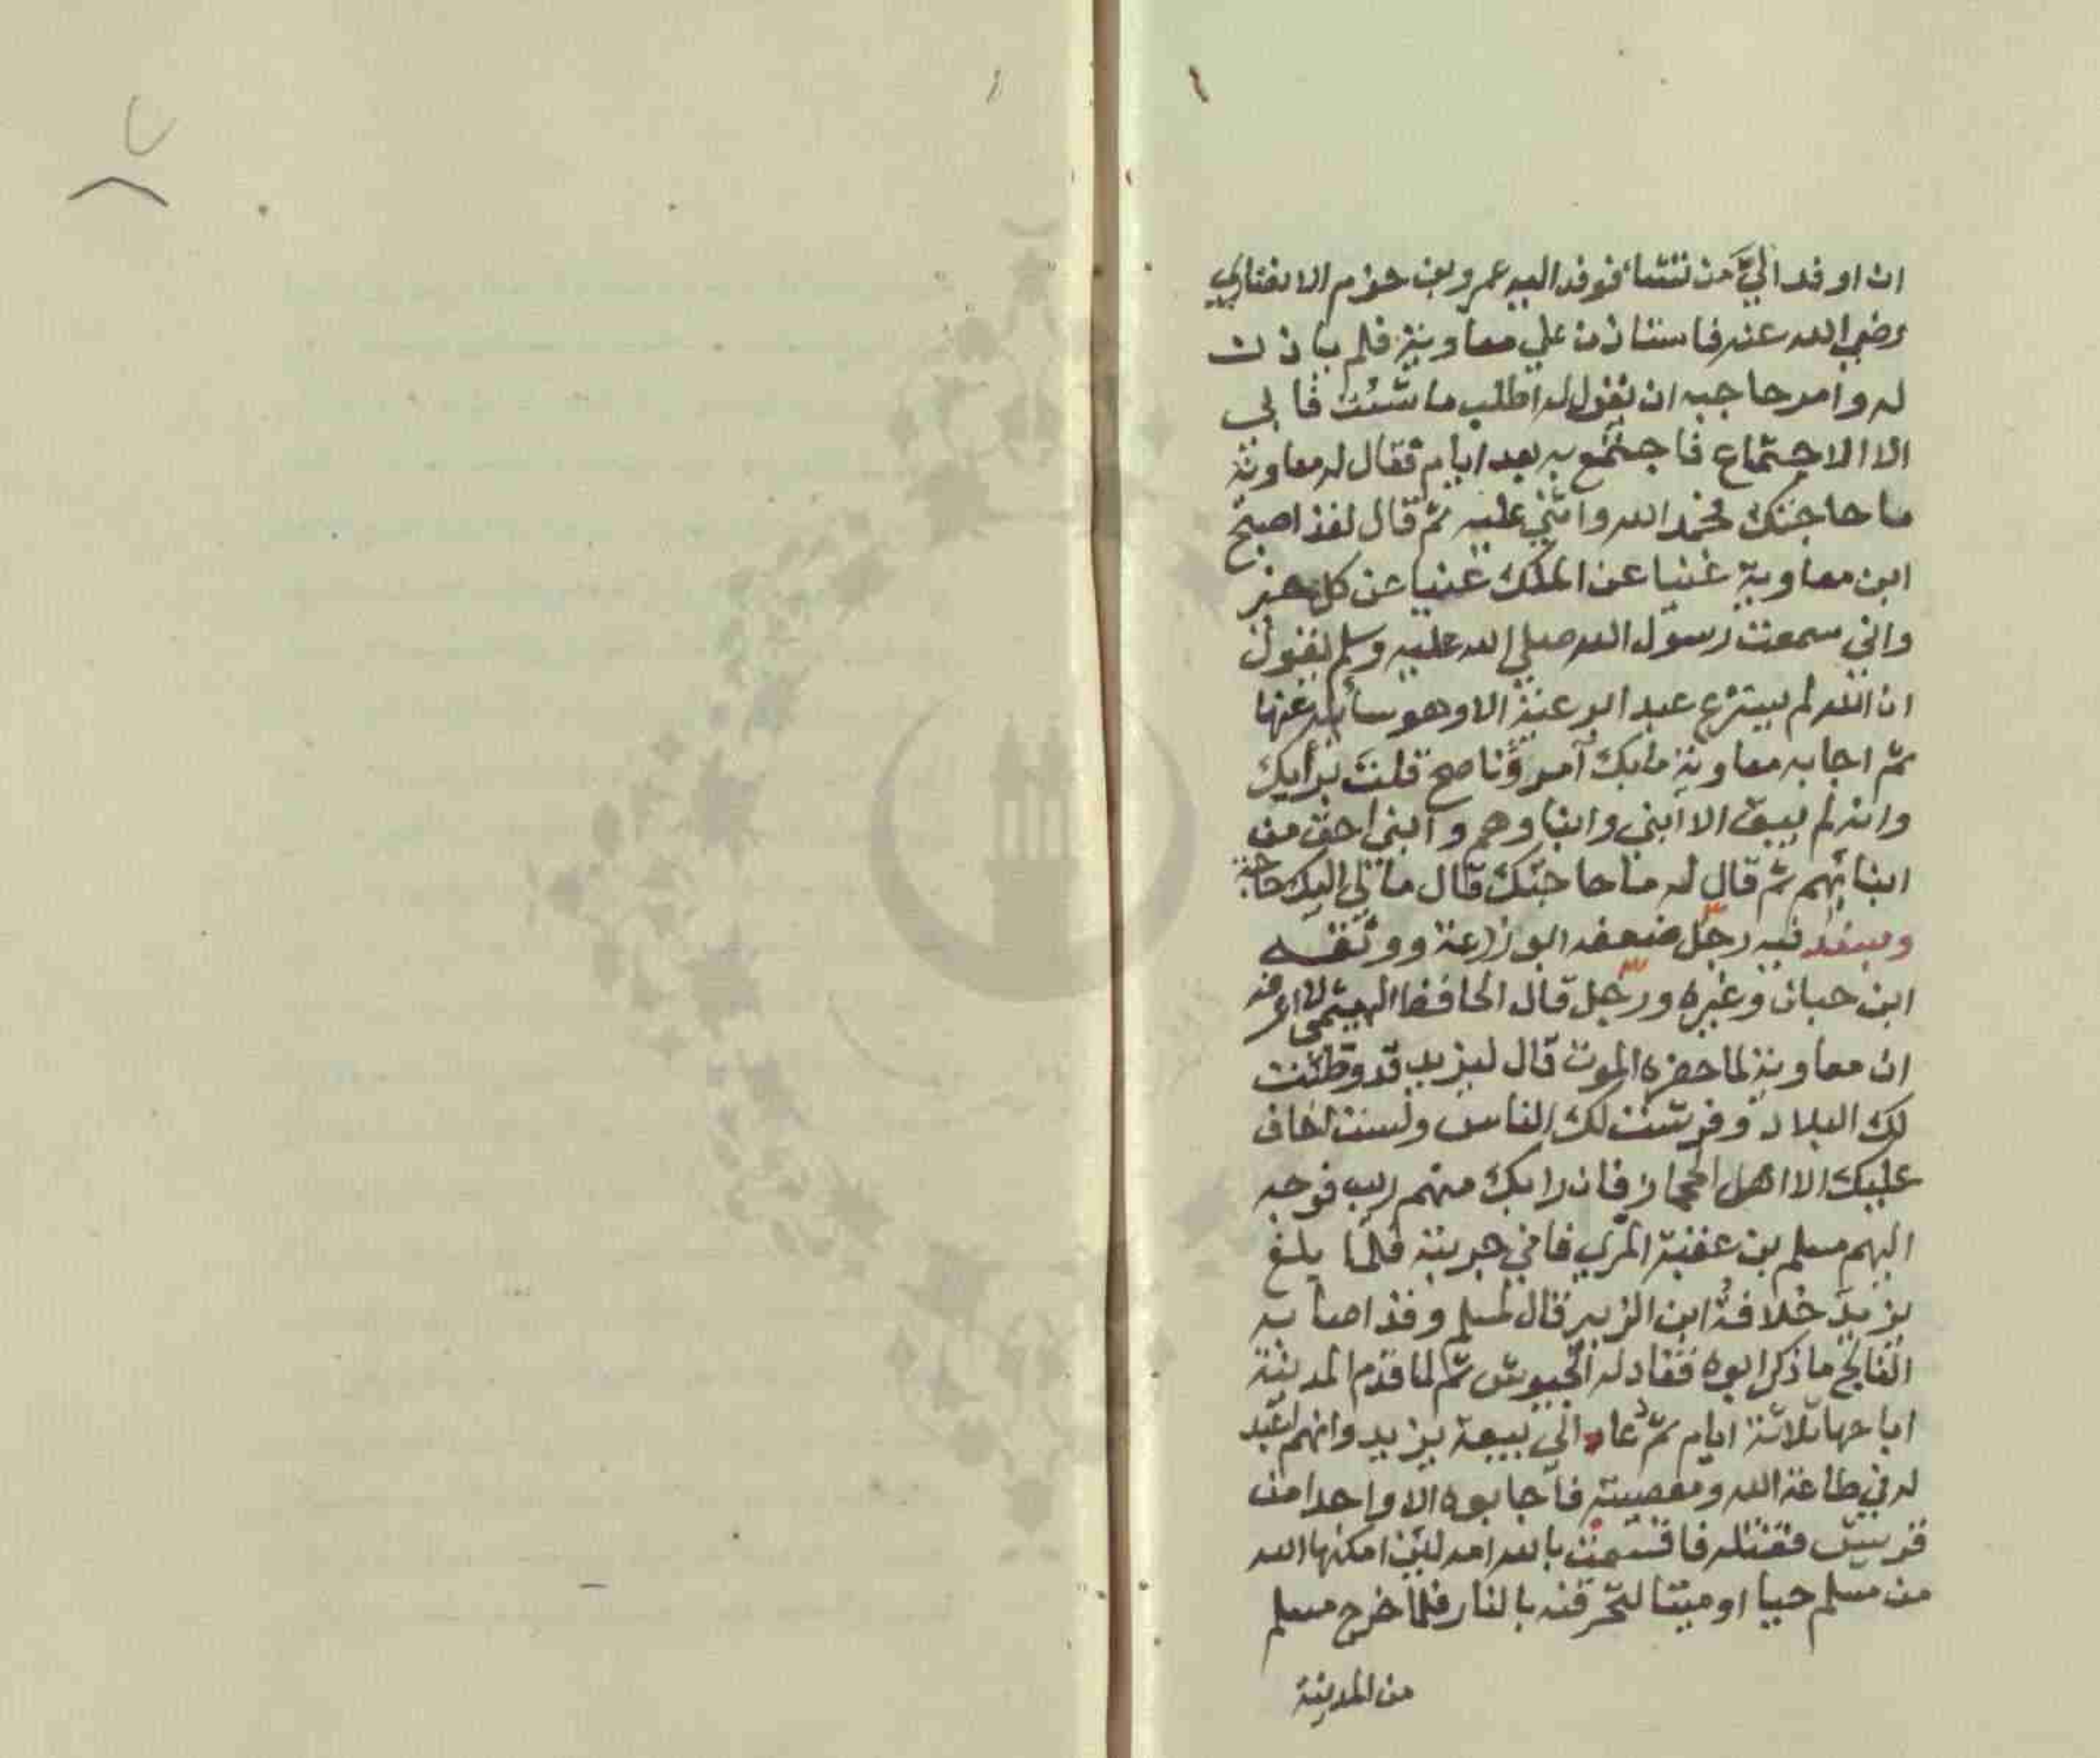 ان اوفد اليَّ من تشاء فوفد اليه عمرو بن حزم الانصاري
رضي الله عنه فاستاذن علي معاوية فلم ياذن
له وامر حاجبه ان يقول له اطلب ما شئت فابى
الا الاجتماع فاجتمع به بعد ايام فقال له معاوية
ما حاجتك فحمد الله واثني عليه ثم قال لقد اصبح
ابن معاوية غنيا عن الملك غنيا عن كل خير
واني سمعت رسول الله صلي الله عليه وسلم يقول
ان الله لم يسترع عبدا رعية الا وهو سائله عنها
ثم اجابه معاوية بانك آمرؤ ناصح قلت برأيك
وانه لم يبق الا ابني وابناوهم وابني احق من
ابنائهم ثم قال له ما حاجتك قال مالي اليك حاجة
وبسند فيه رجل ضعفه ابو زرعة ووثقه
ابن حبان وغيره ورجل قال الحافظ الهيثمي لا اعرفه
ان معاوية لما حضره الموت قال ليزيد قد وطئت
لك البلاد وفرشت لك الناس ولست اخاف
عليك الا اهل الحجاز فان رابك منهم ريب فوجه
اليهم مسلم بن عقبة المري فاني جربته فلما بلغ
يزيد خلافة ابن الزبير قال لمسلم وقد اصابه
الفالج ما ذكر ابوه فقاد له الجيوش ثم لما قدم المدينة
اباحها ثلاثة ايام ثم دعا الي بيعة يزيد وانهم اعبد
له في طاعة الله ومعصيته فاجابوه الا واحدا من
قريش فقتله فاقسمت بالله امه لئن امكنها الله
من مسلم حيا او ميتا لتحرقنه بالنار فلما خرج مسلم
من المدينة